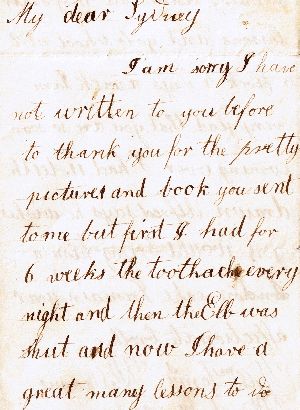 My dear Sydney
I am sorry I have
not written to you before
to thank you for the pretty
pictures and book you sent
to me but first I had for
6 weeks the toothache every
night and then the Elb was
shut and now I have a
great many lessons to do